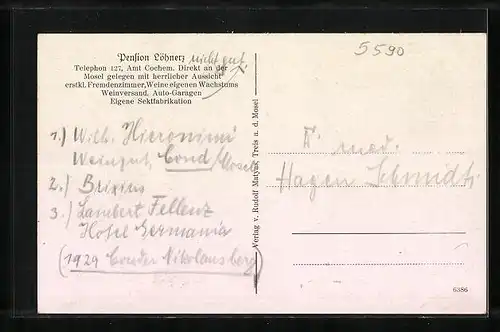 5590
Pension Löhnerz nicht gut.
Telephon 127, Amt Cochem. Direkt an der
Mosel gelegen mit herrlicher Aussicht
erstkl. Fremdenzimmer, Weine eigenen Wachstums
Weinversand, Auto-Garagen
Eigene Sektfabrikation
1.) Wilh. Hieronimi
Weingut, Cond/Mosel
2.) Brixius
3.) Lambert Fellenz
Hotel Germania
(1929 Conder Nikolausberg)
Verlag v. Rudolf Matysik Treis a. d. Mosel
med.
Hagen Schmidt
6386